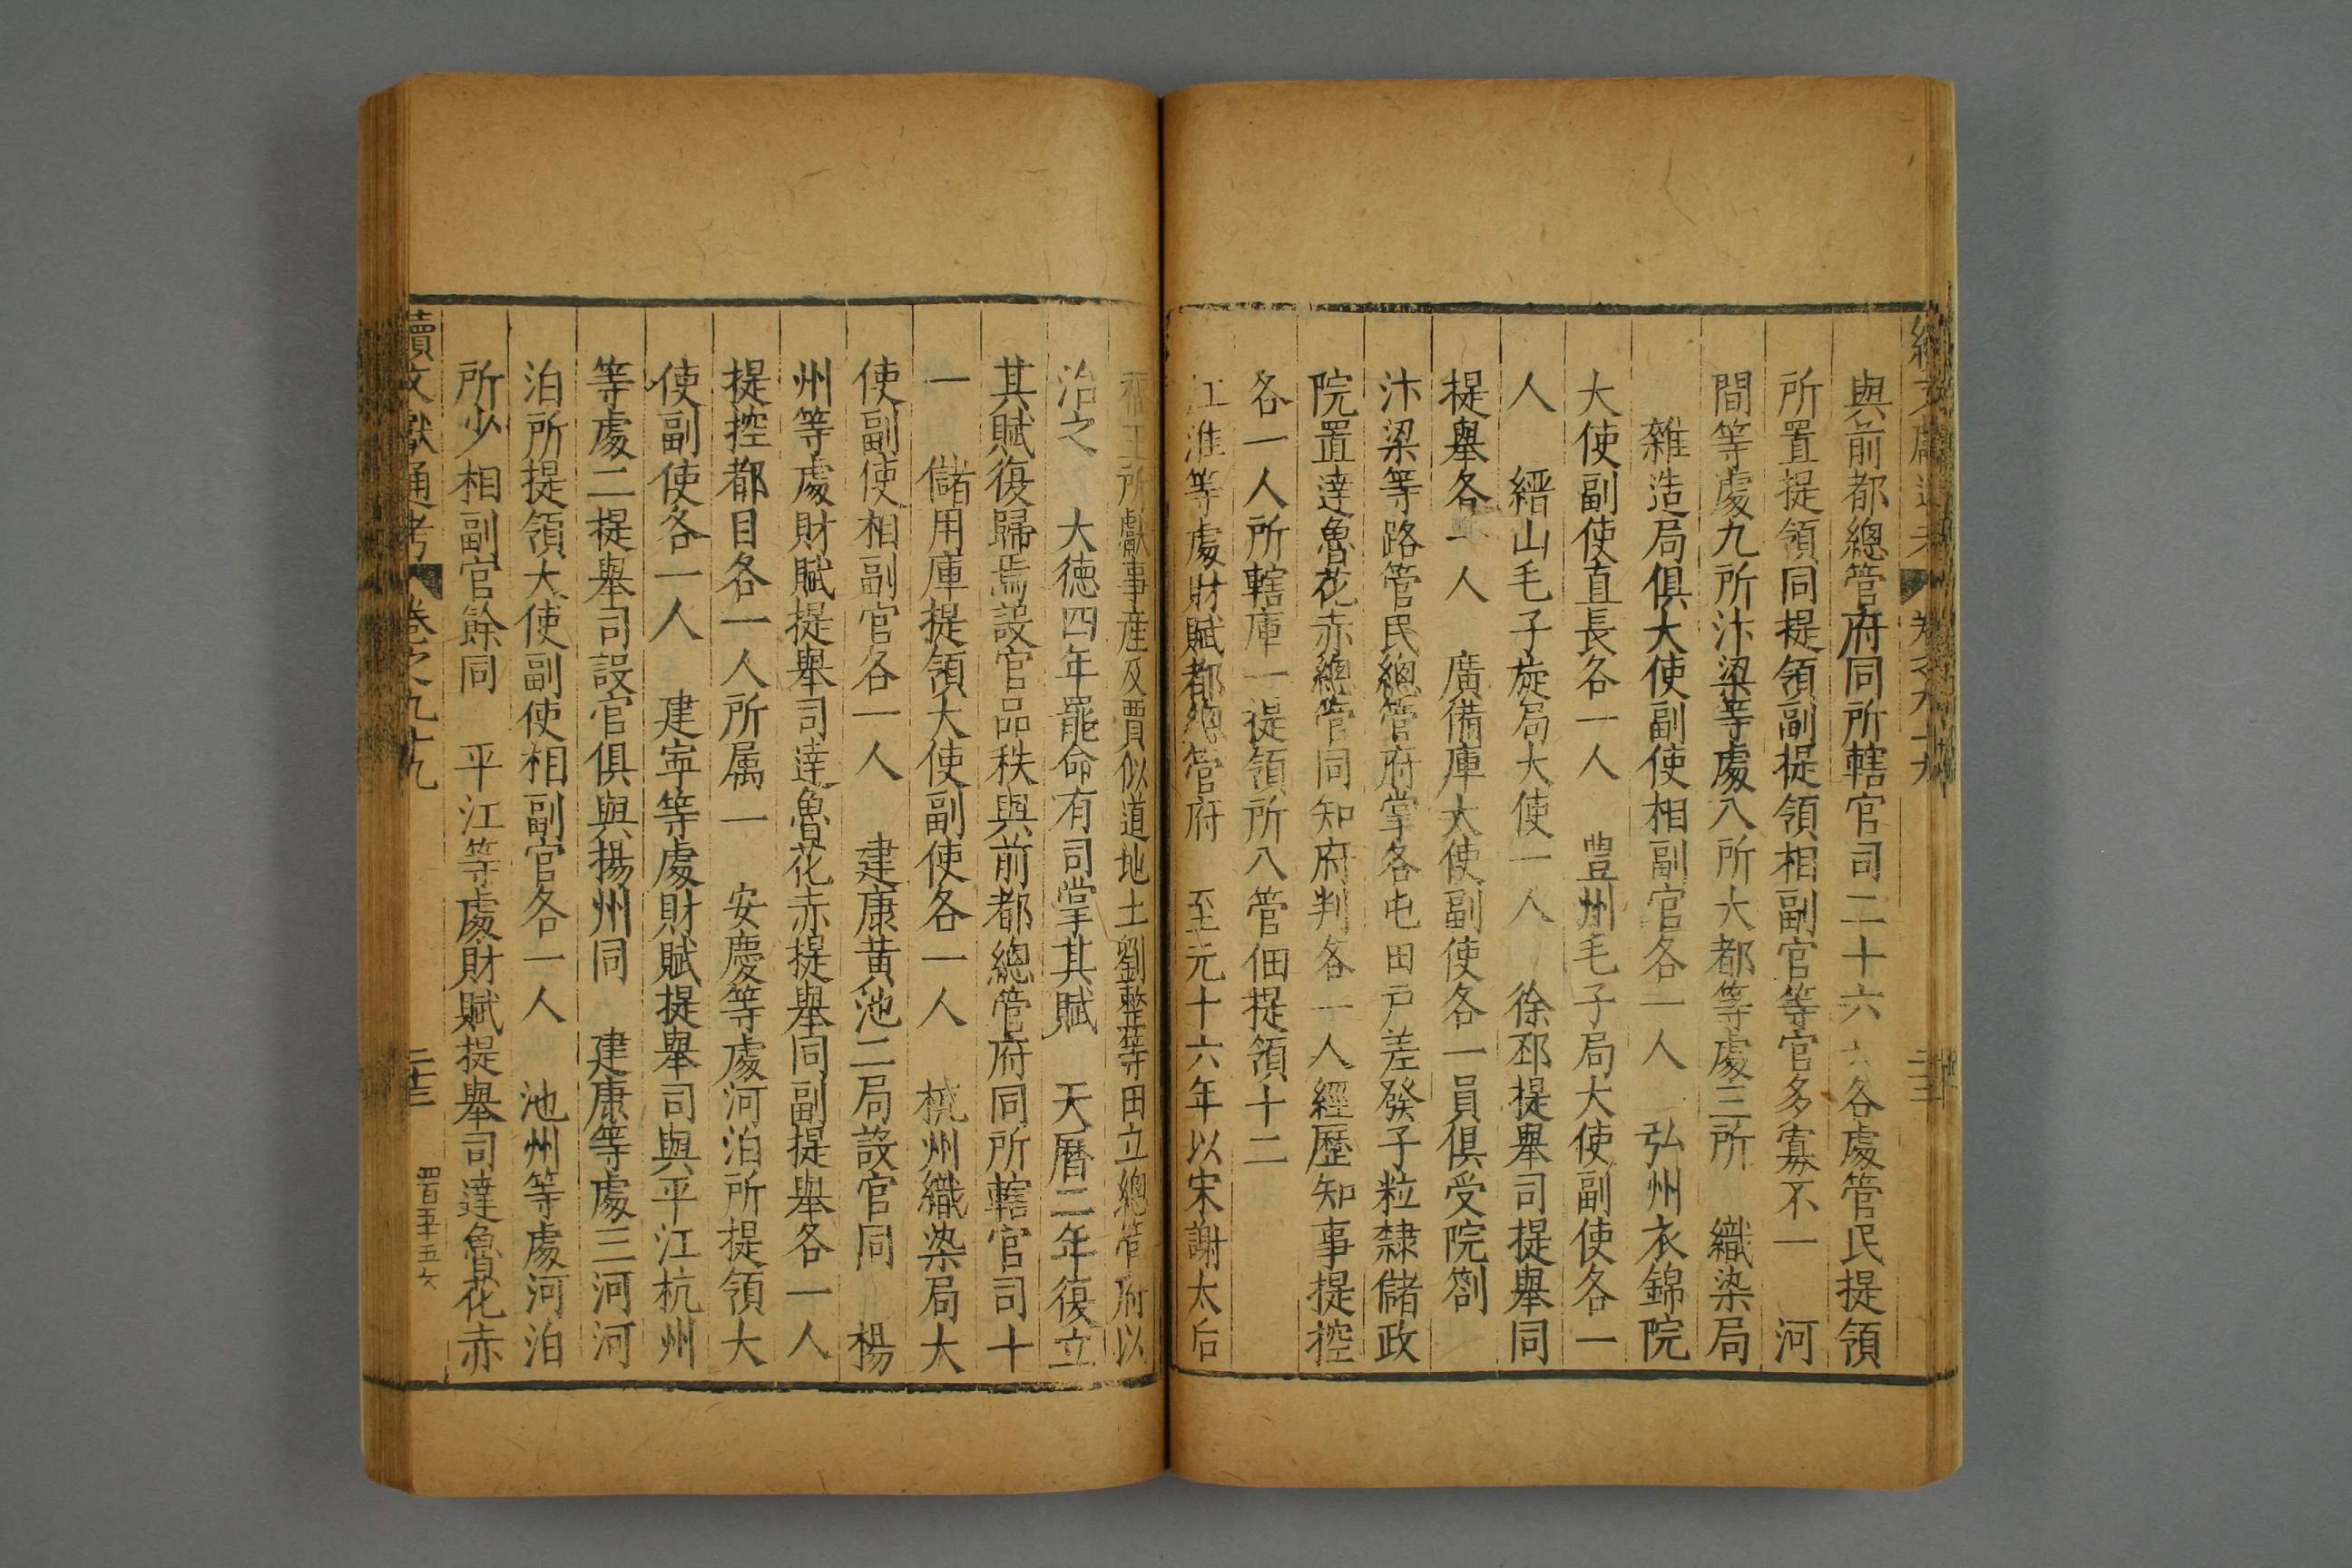 續文獻通考 卷之九十九 二十三
與前都總管府同所轄官司二十六 各處管民提領
所置提領同提領副提領相副官等官多寡不一 河
間等處九所汴梁等處八所大都等處三所 織染局
雜造局俱大使副使相副官各一人 弘州衣錦院
大使副使直長各一人 豊州毛子局大使副使各一
人 縉山毛子旋局大使一人 徐邳提舉司提舉同
提舉各一人 廣備庫大使副使各一員俱受院劄
汴梁等路管民總管府掌各屯田戶差發子粒隸儲政
院置達魯花赤總管同知府判各一人經歷知事提控
各一人所轄庫一提領所八管佃提領十二
江淮等處財賦都總管府 至元十六年以宋謝太后
福王所獻事產及賈似道地土劉整等田立總管府以
治之 大德四年罷命有司掌其賦 天曆二年復立
其賦復歸焉設官品秩與前都總管府同所轄官司十
一 儲用庫提領大使副使各一人 杭州織染局大
使副使相副官各一人 建康黃池二局設官同 揚
州等處財賦提舉司達魯花赤提舉同副提舉各一人
提控都目各一人所属一 安慶等處河泊所提領大
使副使各一人 建寧等處財賦提舉司與平江杭州
等處二提舉司設官俱與揚州同 建康等處三河河
泊所提領大使副使相副官各一人 池州等處河泊
所少相副官餘同 平江等處財賦提舉司達魯花赤
續文獻通考 卷之九十九 二十三 四百五十五